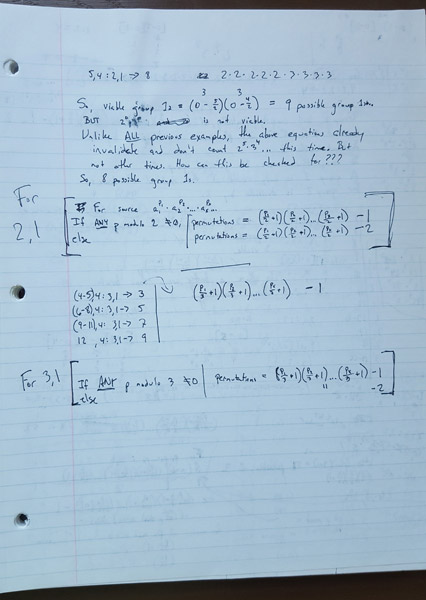 5,4 : 2,1 → 8 2·2·2·2·2·3·3·3·3
3 3
So, viable group 1s = (0 - 5/2)(0 - 4/2) = 9 possible group 1s.
BUT is not viable.
Unlike ALL previous examples, the above equations already
invalidate and don't count this time. But
not other times. How can this be checked for???
So, 8 possible group 1s.
For
2,1
For source a₁^P₁ · a₂^P₂ · ...
If ANY p modulo 2 ≠0, permutations = (P₁/2 +1)(P₂/2 +1)...(Pₓ/2 +1) -1
else permutations = (P₁/2 +1)(P₂/2 +1)...(Pₓ/2 +1) -2
(4-5),4 : 3,1 → 3 (P₁/3 +1)(P₂/3 +1)...(Pₓ/3 +1) -1
(6-8),4 : 3,1 → 5
(9-11),4 : 3,1 → 7
12 ,4 : 3,1 → 9
For 3,1
If ANY p modulo 3 ≠0 permutations = (P₁/3 +1)(P₂/3 +1)...(Pₓ/3 +1) -1
else " -2